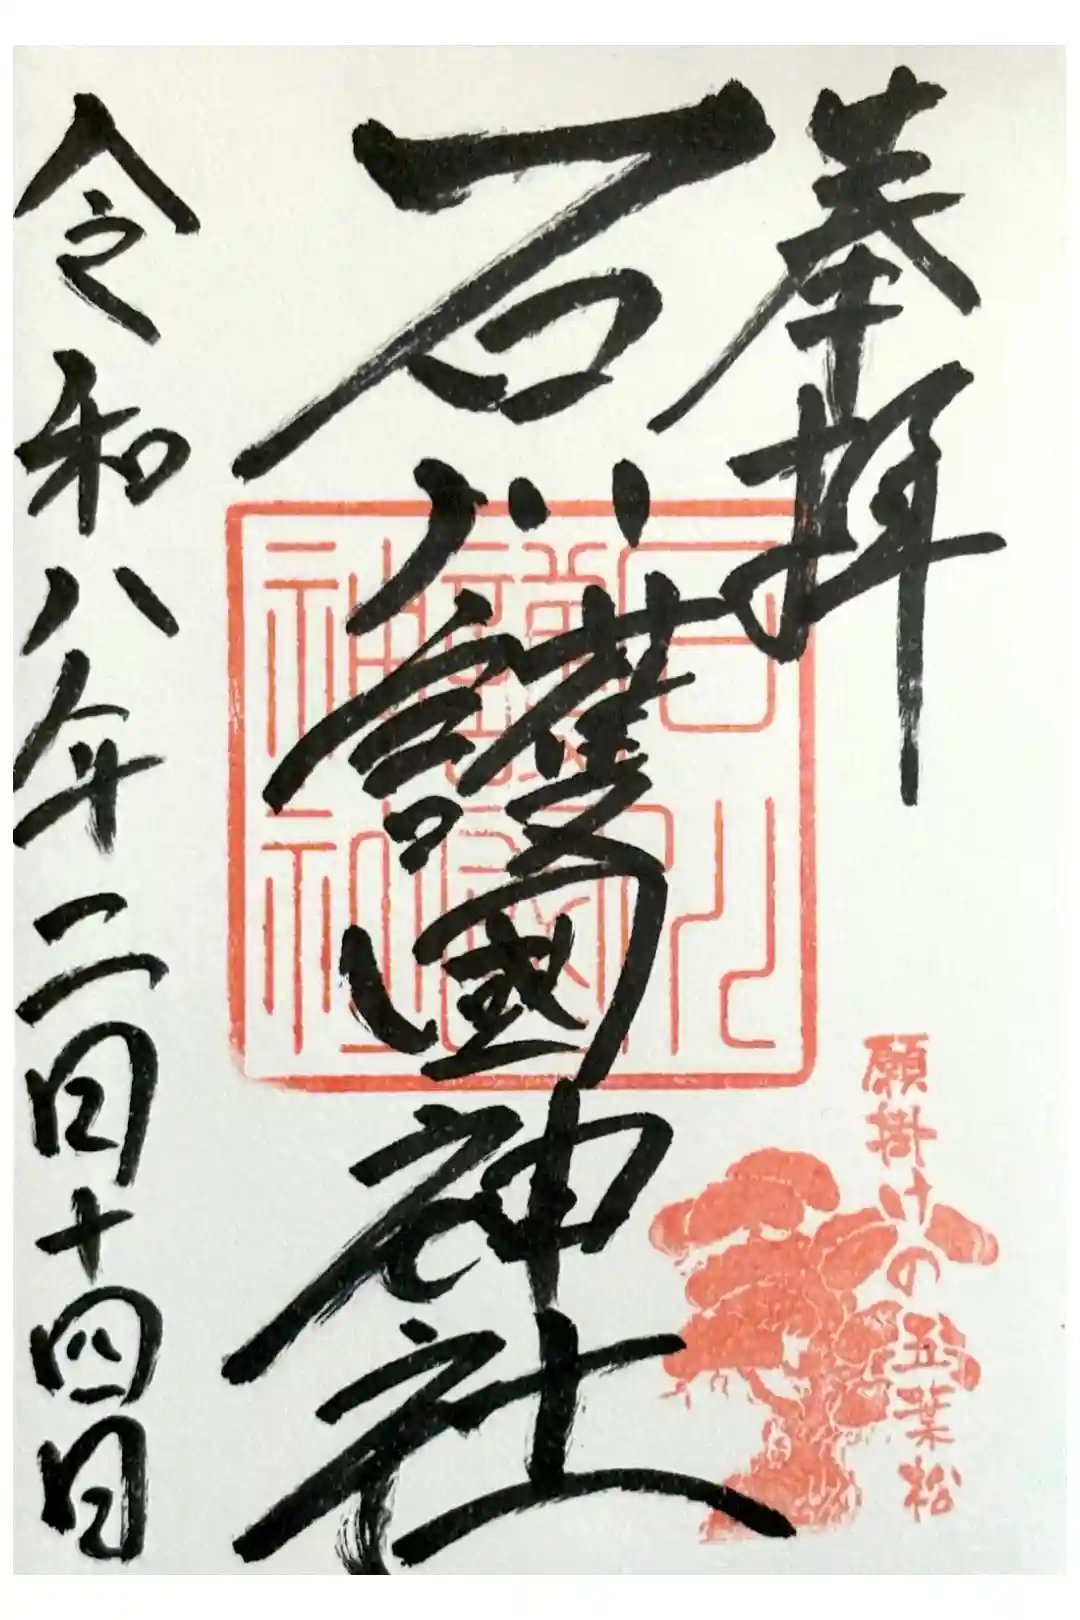 奉拝
石川護國神社
石川護國神社
願掛けの五葉松
令和八年二月十四日